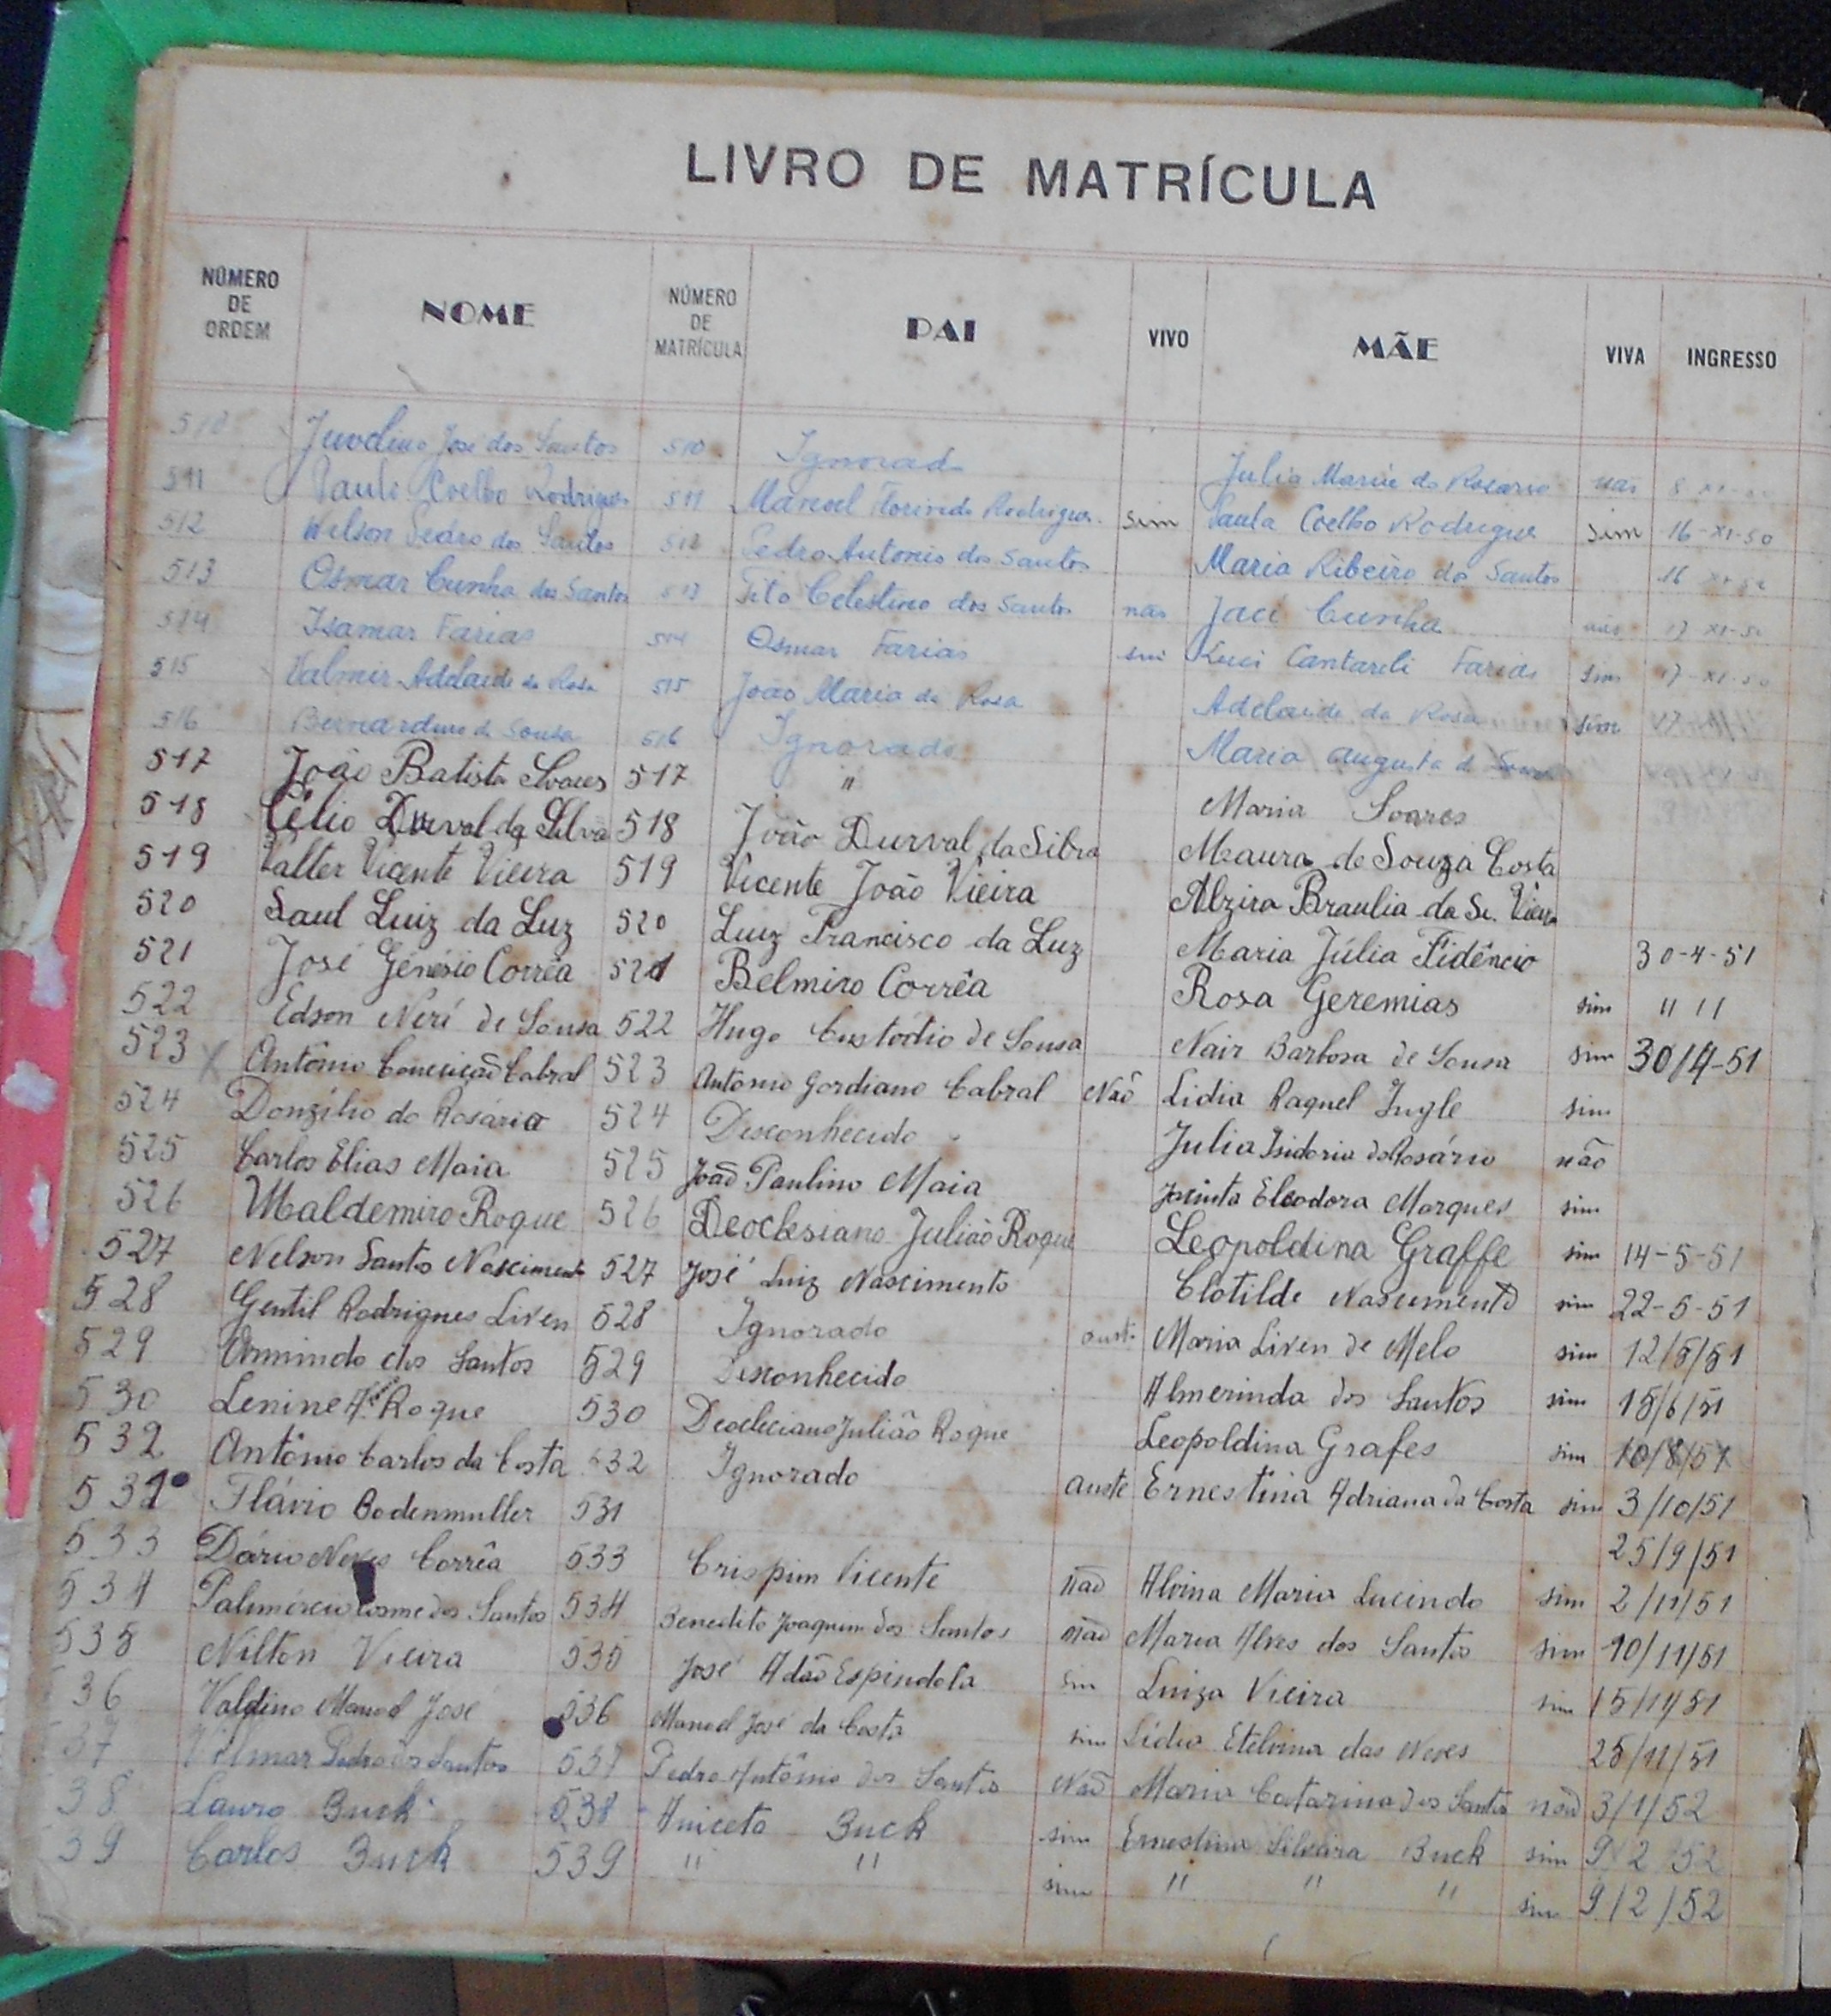 LIVRO DE MATRÍCULA
NÚMERO DE ORDEM NOME NÚMERO DE MATRÍCULA PAI VIVO MÃE VIVA INGRESSO
510 José dos Santos 510 Ignorado Julia Maria do Rosario não
511 Paulo Coelho Rodrigues 511 Manoel Florindo Rodrigues sim Paula Coelho Rodrigues sim 16-XI-50
512 Wilson Pedro dos Santos 512 Pedro Antonio dos Santos Maria Ribeiro dos Santos 16
513 Osmar Cunha dos Santos 513 Tito Celestino dos Santos não Jaci Cunha não 17-XI-50
514 Isamar Farias 514 Osmar Farias sim Luci Cantareli Farias sim 17-XI-50
515 Valmir Adelaide da Rosa 515 João Maria da Rosa Adelaide da Rosa sim
516 Bernardino de Sousa 516 Ignorado Maria Augusta de
517 João Batista Soares 517 " Maria Soares
518 Célio Durval da Silva 518 João Durval da Silva Maura de Souza Costa
519 Valter Vicente Vieira 519 Vicente João Vieira Alzira Braulia da Sc. Vieira
520 Saul Luiz da Luz 520 Luiz Francisco da Luz Maria Júlia Fidêncio 30-4-51
521 José Genésio Corrêa 521 Belmiro Corrêa Rosa Geremias sim " "
522 Edson Nerí de Sousa 522 Hugo Custódio de Sousa Nair Barbosa de Sousa sim 30/4-51
523 Antônio Conceição Cabral 523 Antônio Gordiano Cabral Não Lidia Raquel Ingle sim
524 Donzílio do Rosário 524 Desconhecido Julia Isidoria do Rosário não
525 Carlos Elias Maia 525 João Paulino Maia Jacinta Eleodora Marques sim
526 Waldemiro Roque 526 Deoclesiano Julião Roque Leopoldina Graffe sim 14-5-51
527 Nelson Santos Nascimento 527 José Luiz Nascimento Clotilde Nascimento sim 22-5-51
528 Gentil Rodrigues Liven 528 Ignorado Maria Liven de Melo sim 12/5/51
529 Armindo dos Santos 529 Desconhecido Almerinda dos Santos sim 15/6/51
530 Lenine Roque 530 Deocleciano Julião Roque Leopoldina Grafes sim 10/8/51
532 Antônio Carlos da Costa 532 Ignorado auste Ernestina Adriana da Costa sim 3/10/51
531 Flávio Bodenmuller 531 25/9/51
533 Dário Neves Corrêa 533 Crispim Vicente não Alvina Maria Lucindo sim 2/11/51
534 Palmércio Cosme dos Santos 534 Benedito Joaquim dos Santos não Maria Alves dos Santos sim 10/11/51
535 Nilton Vieira 535 José Adão Espindola sim Luiza Vieira sim 15/11/51
36 Valdino Manoel José 536 Manoel José da Costa sim Lídia Etelvina das Neves 25/11/51
37 Vilmar Pedro dos Santos 537 Pedro Antônio dos Santos Não Maria Catarina dos Santos não 3/1/52
38 Lauro Buck 538 Aniceto Buck sim Ernestina Silveira Buck sim 9/2/52
39 Carlos Buck 539 " " sim " " " sim 9/2/52